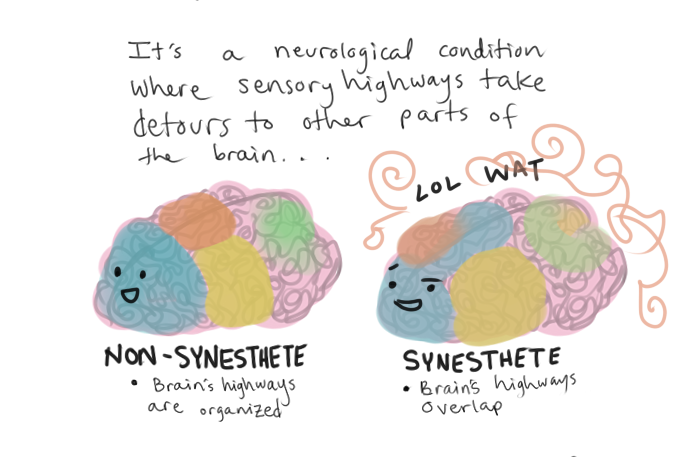 It's a neurological condition
where sensory highways take
detours to other parts of
the brain...
LOL WAT
NON-SYNESTHETE
• Brain's highways
are organized
SYNESTHETE
• Brain's highways
overlap